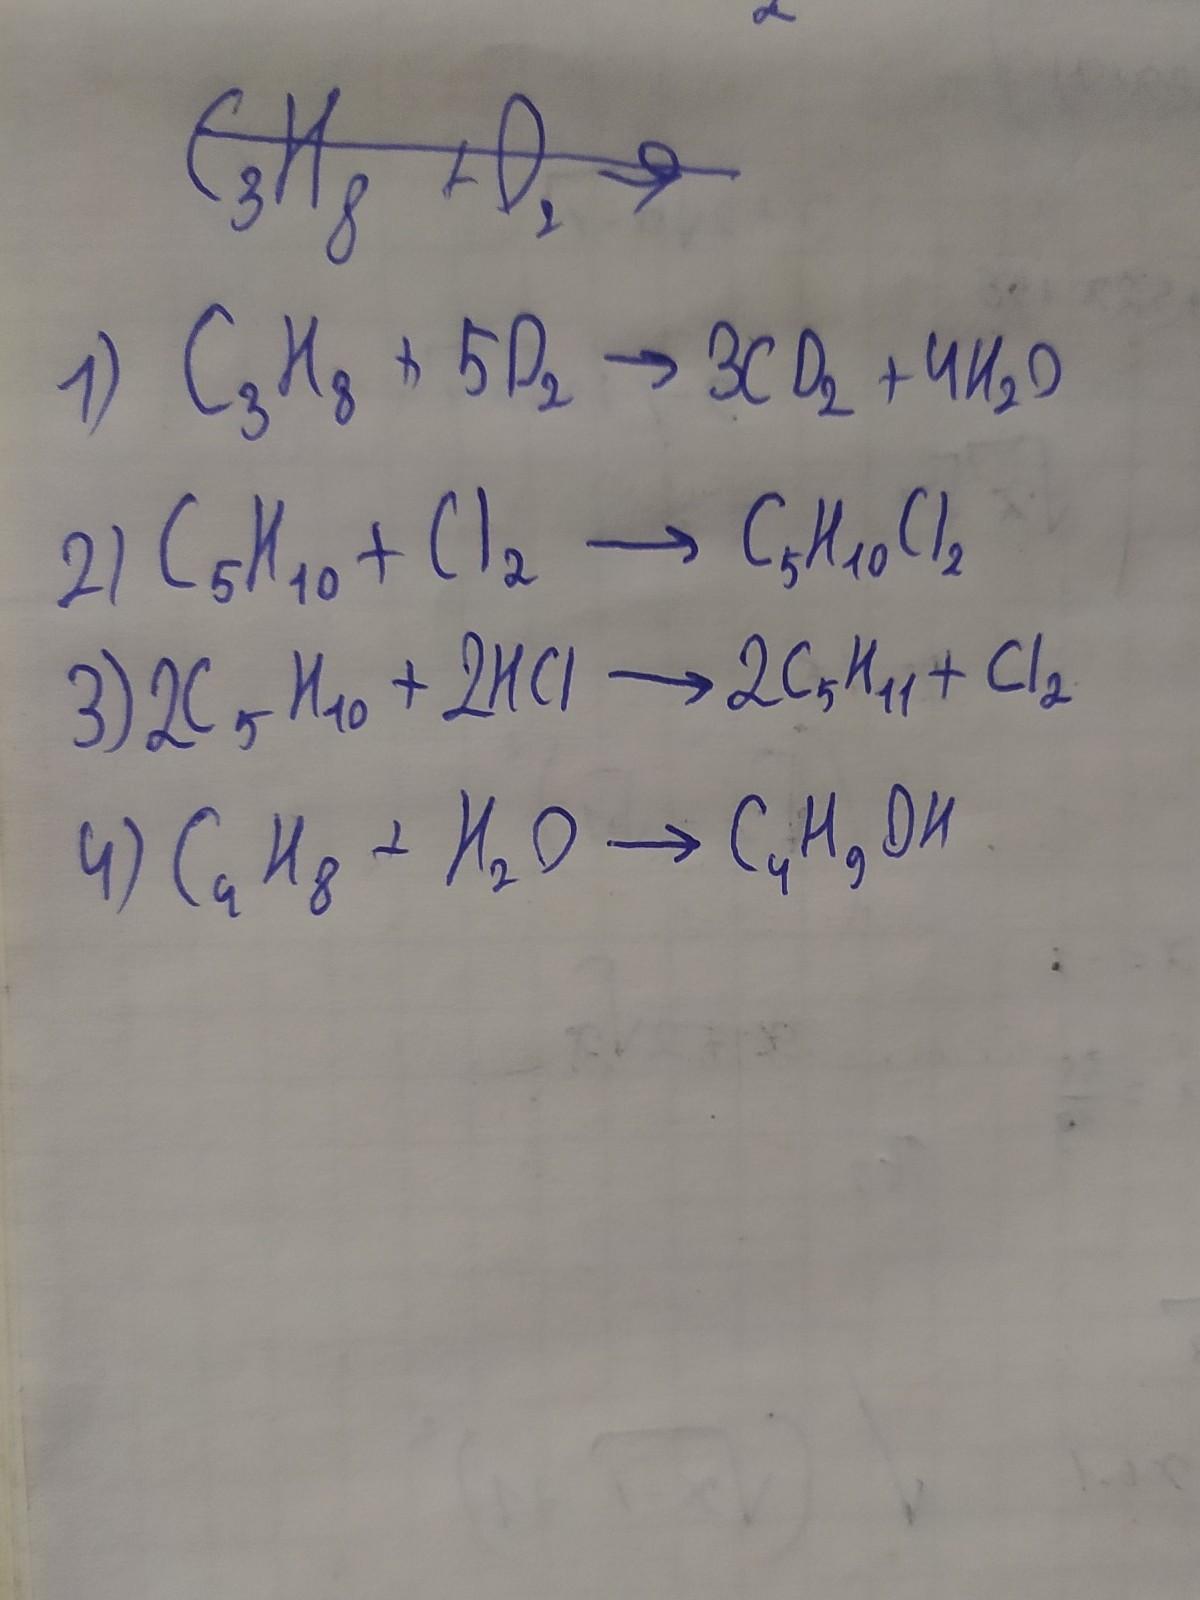 C₃H₈ + O₂ →
1) C₃H₈ + 5O₂ → 3CO₂ + 4H₂O
2) C₅H₁₀ + Cl₂ → C₅H₁₀Cl₂
3) 2C₅H₁₀ + 2HCl → 2C₅H₁₁ + Cl₂
4) C₄H₈ + H₂O → C₄H₉OH